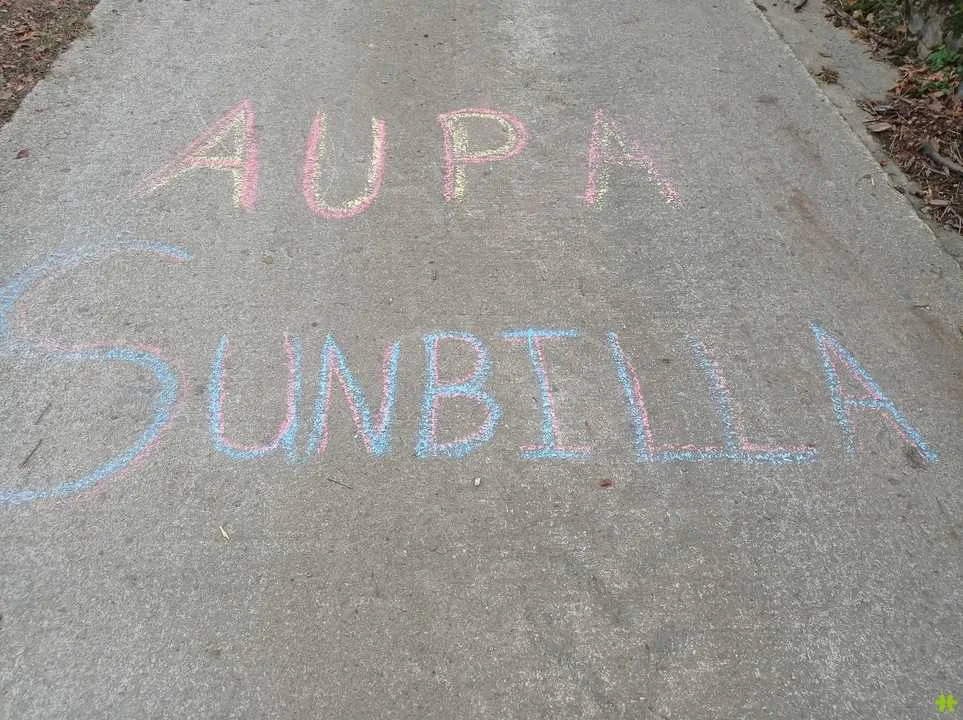 AUPA
SUNBILLA